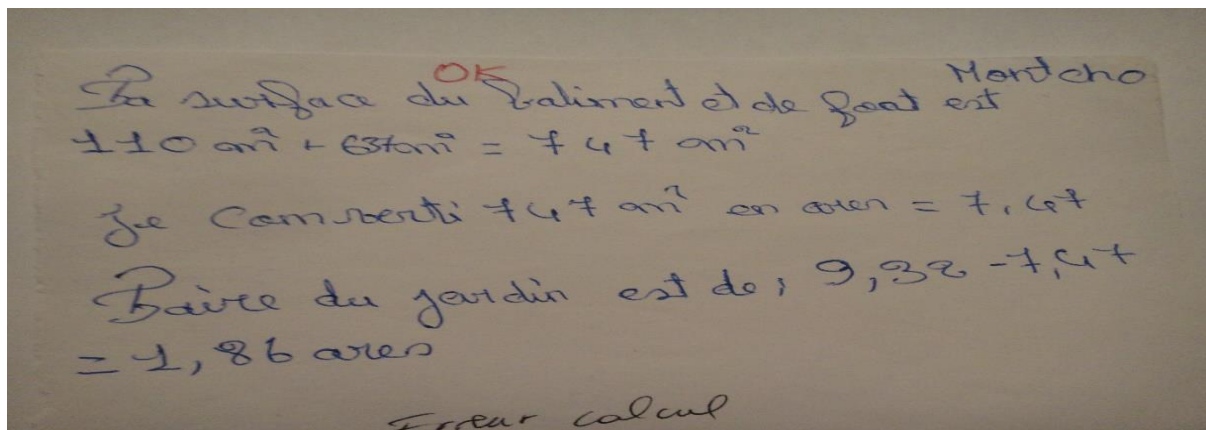 OK
Montcho
La surface du batiment et de foot est
110 m² + 637m² = 747 m²
Je Converti 747 m² en ares = 7,47
L'aire du jardin est de; 9,32 - 7,47
= 1,86 ares
Erreur calcul